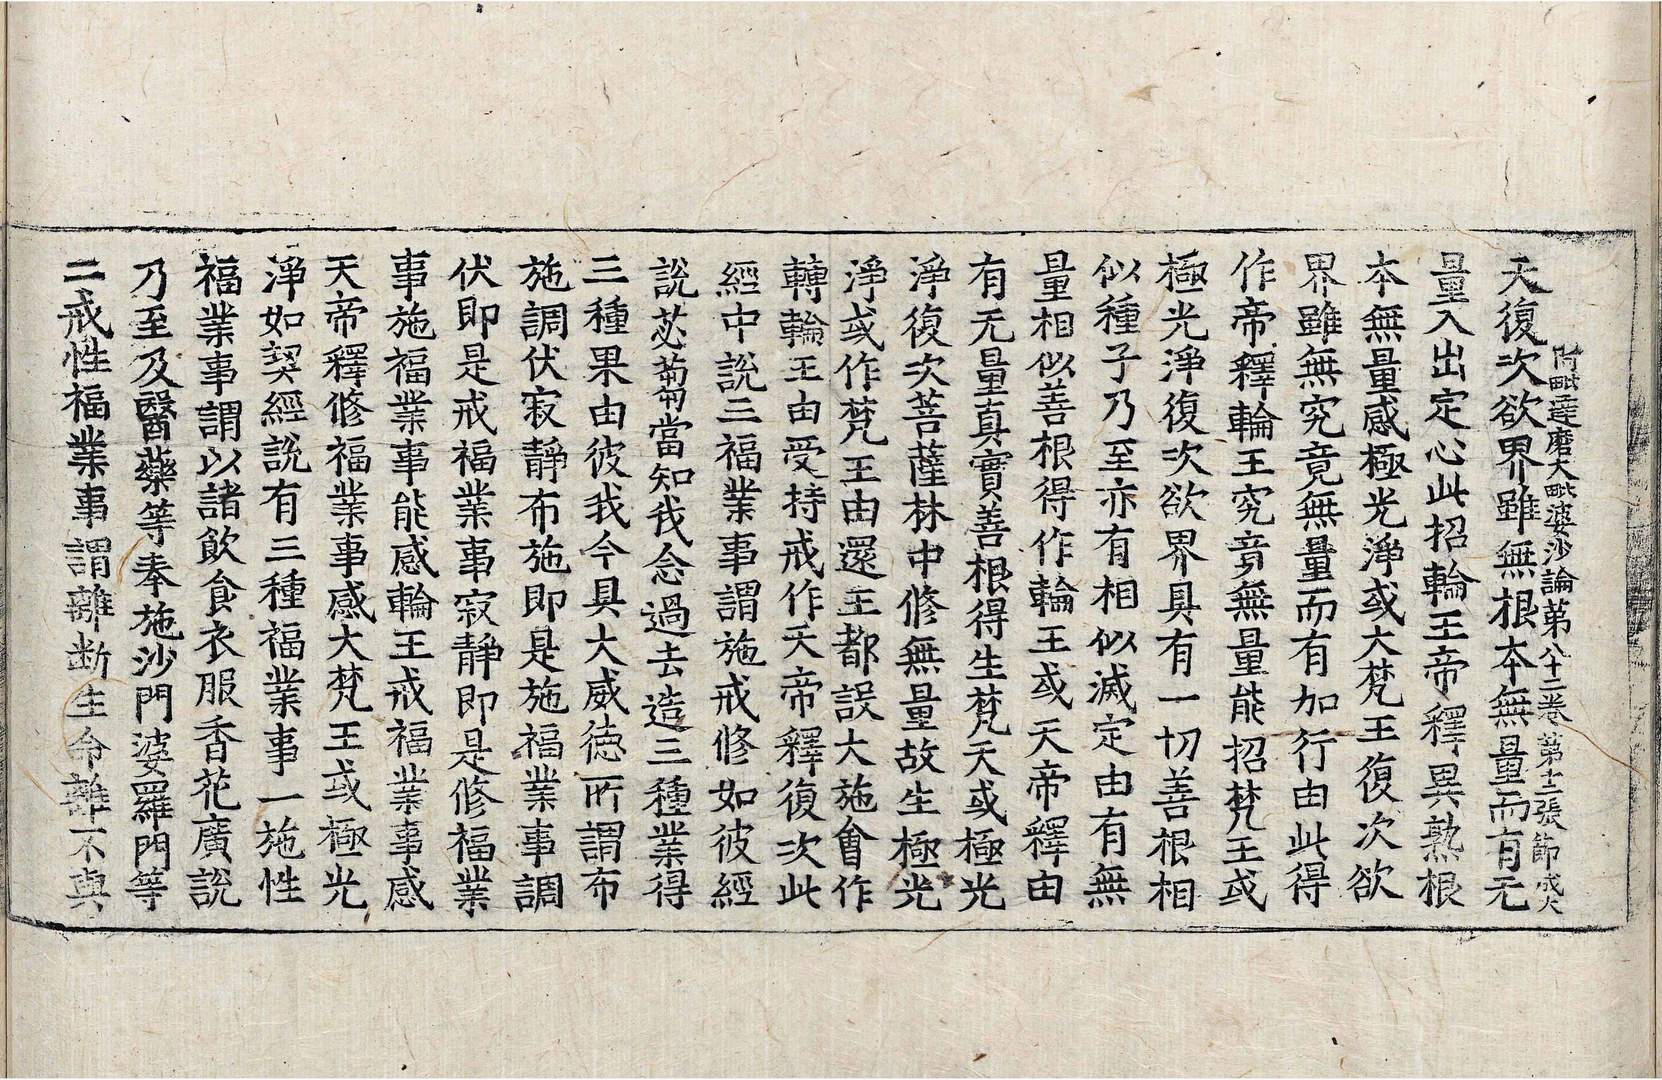 阿毗達磨大毗婆沙論第八十二卷 第十二張 節 成大
天復次欲界雖無根本無量而有无
量入出定心此招輪王帝釋異熟根
本無量感極光淨或大梵王復次欲
界雖無究竟無量而有加行由此得
作帝釋輪王究竟無量能招梵王或
極光淨復次欲界具有一切善根相
似種子乃至亦有相似滅定由有無
量相似善根得作輪王或天帝釋由
有无量真實善根得生梵天或極光
淨復次菩薩林中修無量故生極光
淨或作梵王由還王都設大施會作
轉輪王由受持戒作天帝釋復次此
經中說三福業事謂施戒修如彼經
說苾芻當知我念過去造三種業得
三種果由彼我今具大威德所謂布
施調伏寂靜布施即是施福業事調
伏即是戒福業事寂靜即是修福業
事施福業事能感輪王戒福業事感
天帝釋修福業事感大梵王或極光
淨如契經說有三種福業事一施性
福業事謂以諸飲食衣服香花廣說
乃至及醫藥等奉施沙門婆羅門等
二戒性福業事謂離斷生命離不與